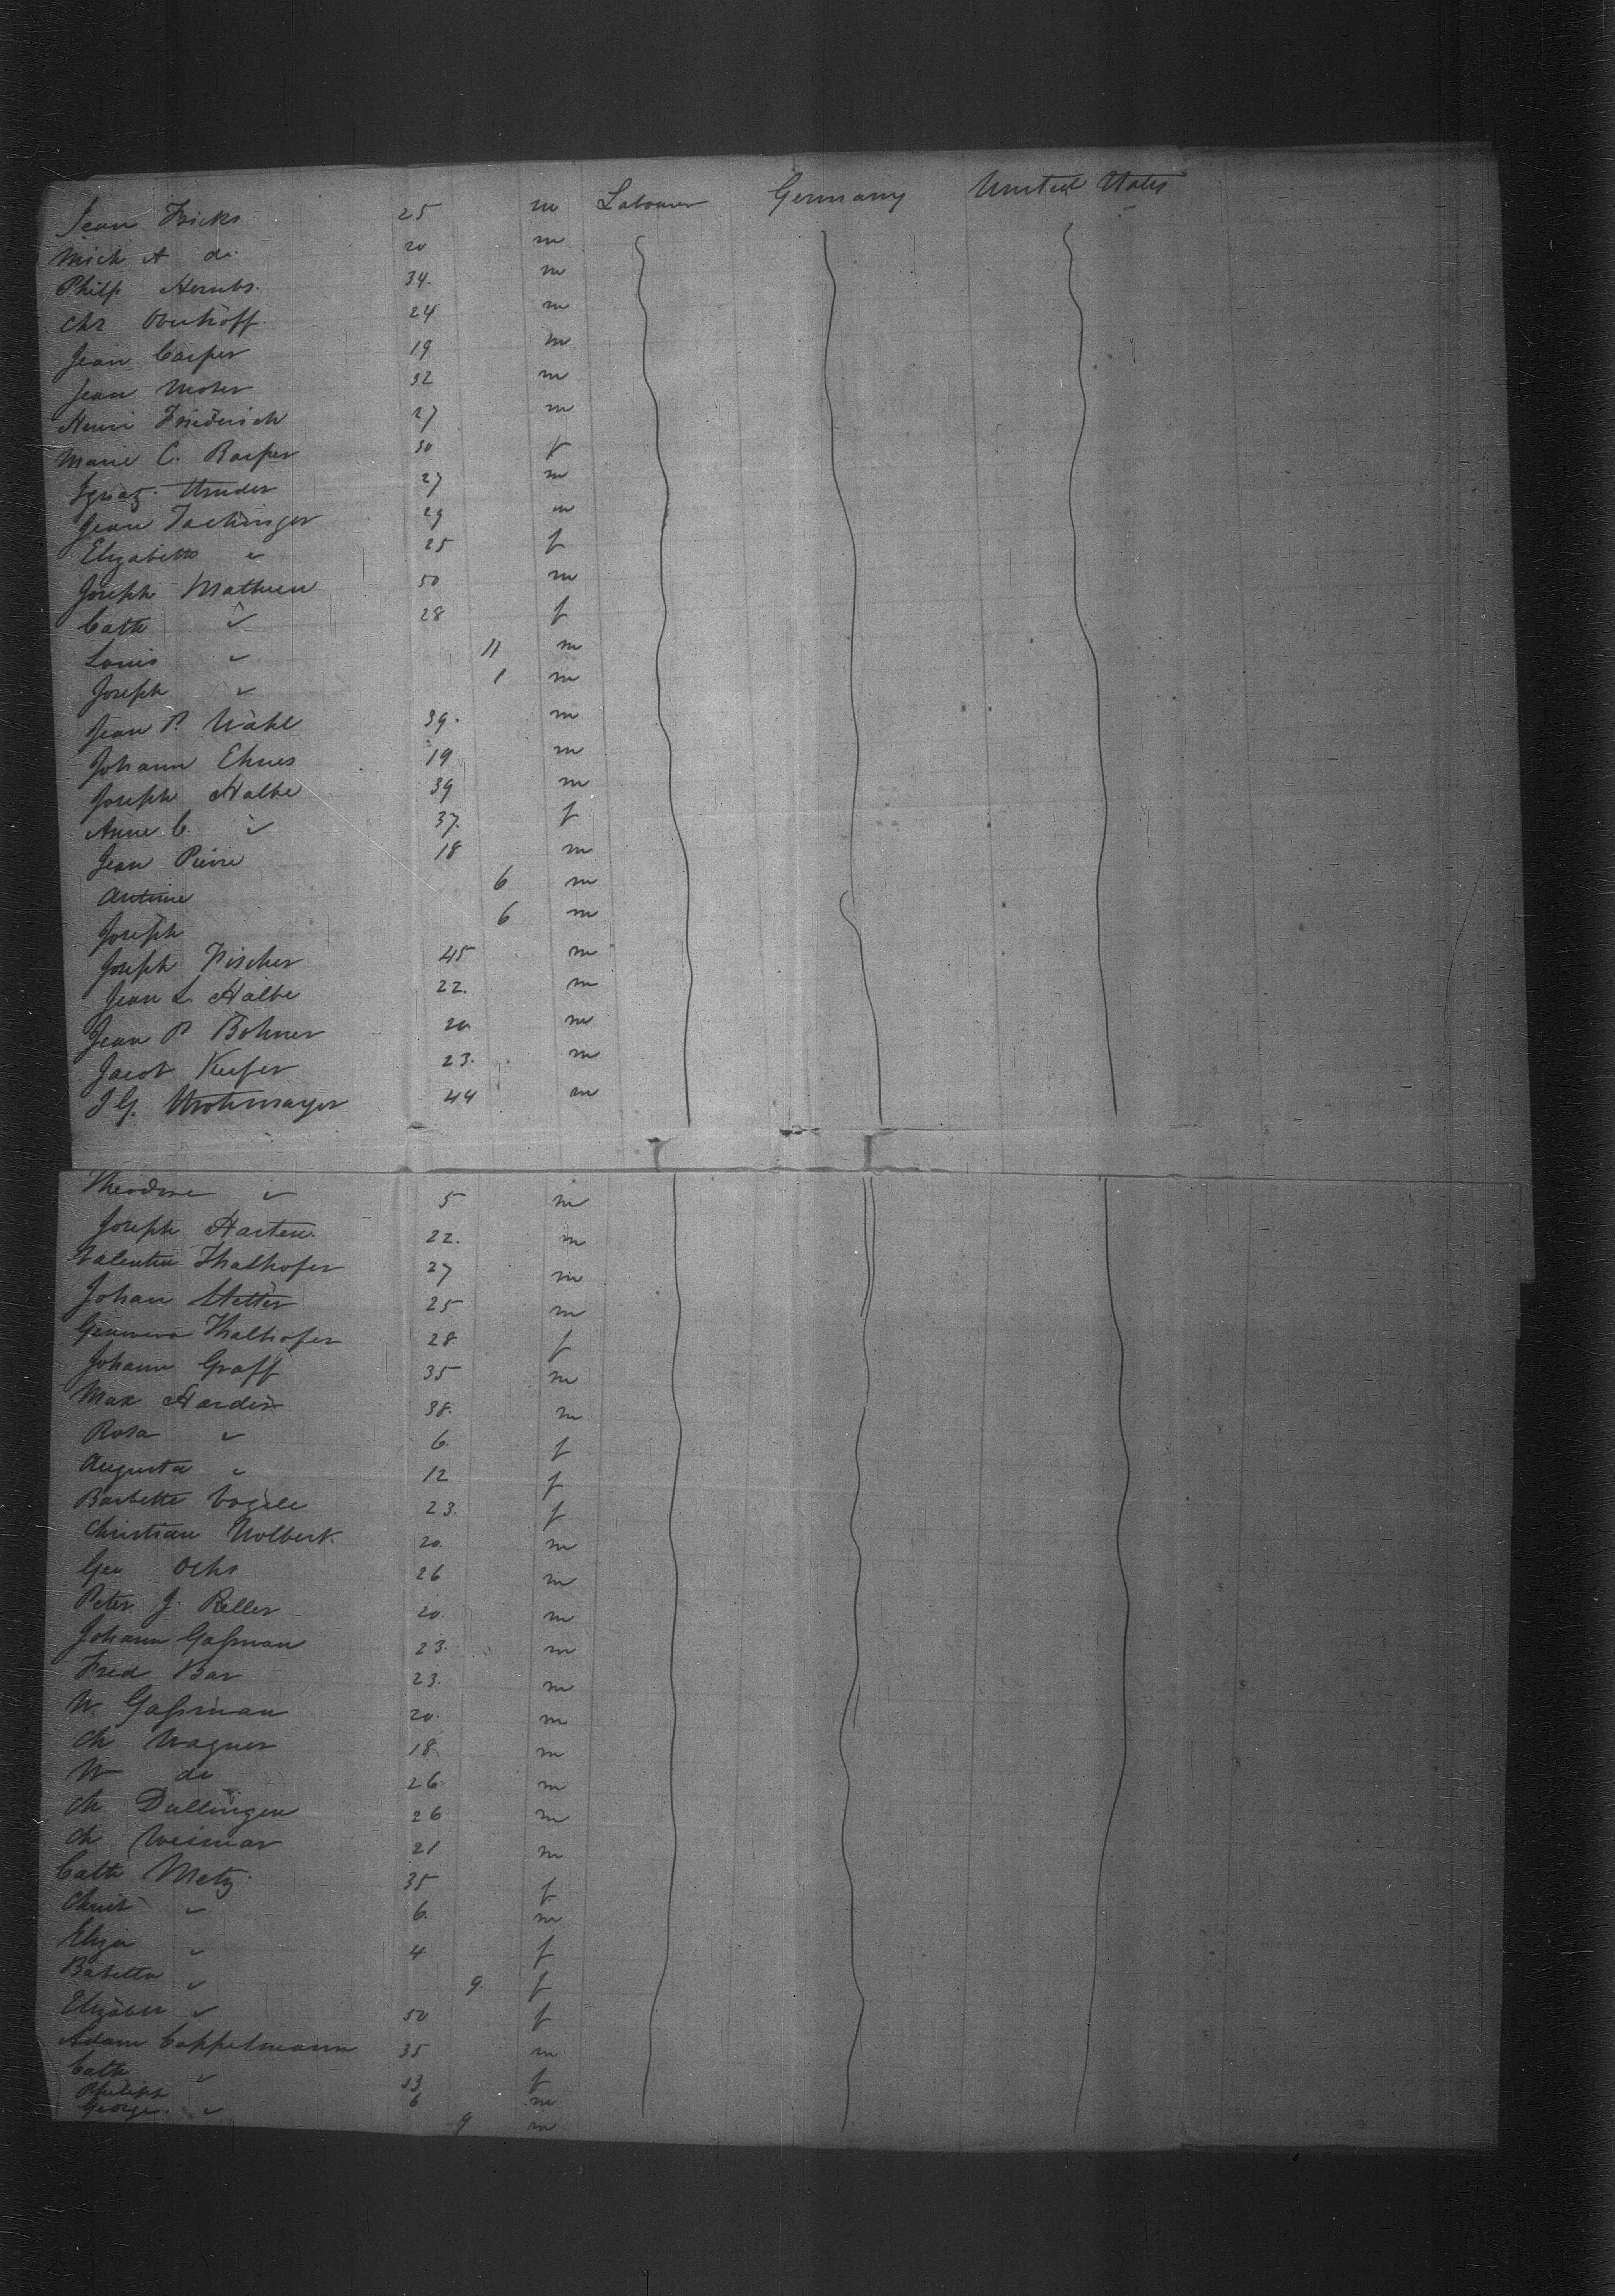 Jean Fricks 25 m Labourer Germany United States
Mich A do. 20 m
Philp 34. m
Chr Overhoff 24 m
Jean Casper 19 m
Jean Moser 32 m
Henri Friederich 27 m
Marie C. Casper 30 f
Ignaz. 27 m
Jean Jachinger 29 m
Elizabeth " 25 f
Joseph Mathieu 50 m
Cath " 28 f
Louis " 11 m
Joseph " 1 m
Jean P. Wahl 39. m
Johann Ehnes 19 m
Joseph Halbe 39 m
Anne C. " 37. f
Jean Pierre 18 m
Antoine 6 m
Joseph 6 m
Joseph Fischer 45 m
Jean L. Halbe 22. m
Jean P Bohner 20 m
Jacob Keefer 23. m
J G. Strohmayer 44 m
Theodore " 5 m
Joseph 22. m
Valentin Thalhofer 27 m
Johan Stetter 25 m
Thalhofer 28. f
Johann Graff 35 m
Max Harder 38. m
Rosa " 6. f
Augusta " 12 f
Barbette Vogele 23. f
Christian Wolbert. 20. m
Geo Ochs 26 m
Peter J. Reller 20. m
Johann Gaſsman 23. m
Fred Bar 23. m
W. Gaſsman 20. m
Ch Wagner 18. m
W do 26. m
Ch Dullingen 26 m
Ch Weimar 21 m
Cath Metz. 35 f
Christ " 6. m
Eliza " 4 f
Babetta " 9. f
" 50 f
Adam Coppelmann 35 m
Cath " 33 f
Philipp 6 m
George. " 9 m